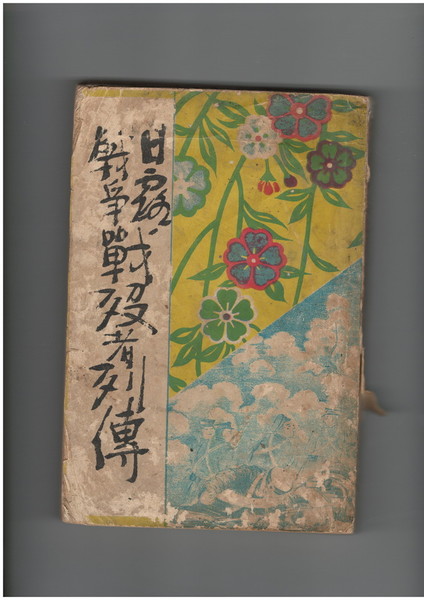 日露
戰争
戰歿者列傳